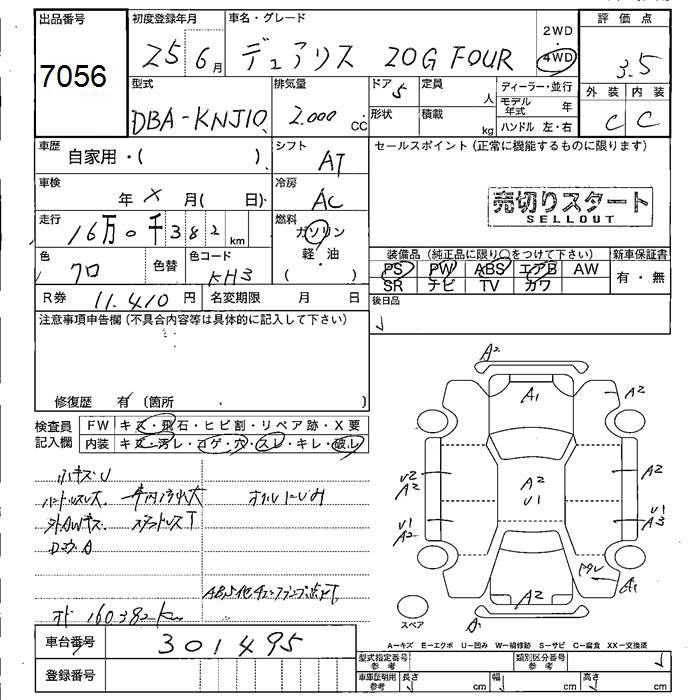 出品番号
7056
初度登録年月
25 6月
車名・グレード
デュアリス 20G FOUR
2WD
・
4WD
評価点
3.5
外装 内装
C C
型式
DBA-KNJ10
排気量
2.000 CC
ドア 5
定員
人
形状
積載
kg
ディーラー・並行
モデル年式 年
ハンドル 左・右
車歴
自家用・( )
シフト
AT
セールスポイント(正常に機能するものに限ります)
売切りスタート
SELLOUT
車検
年 X 月( 日)
冷房
AC
走行
16万0千382 km
燃料
ガソリン
・
軽油
( )
色
クロ
色替
色コード
KH3
装備品(純正品に限り○をつけて下さい)
PS PW ABS エアB AW
SR ナビ TV カワ
新車保証書
有・無
R券 11.410 円
名変期限 月 日
後日品
注意事項申告欄(不具合内容等は具体的に記入して下さい)
修復歴 有 (箇所 )
検査員記入欄
FW キズ・飛石・ヒビ割・リペア跡・X要
内装 キズ・汚レ・コゲ・穴・スレ・キレ・破レ
小キズU
ハンドルスレ大 車内汚れ大
外AWキズ
オイルにじみ
オド 160382km
車台番号
301495
登録番号
A2
A1
A2
U2
A2
A2
U1
A2
U1
A2
U1
A3
A2
A1
スペア
A-キズ E-エクボ U-凹み W-補修跡 S-サビ C-腐食 XX-交換済
型式指定番号 参考
類別区分番号 参考
車庫証明用 参考
長さ cm
幅 cm
高さ cm